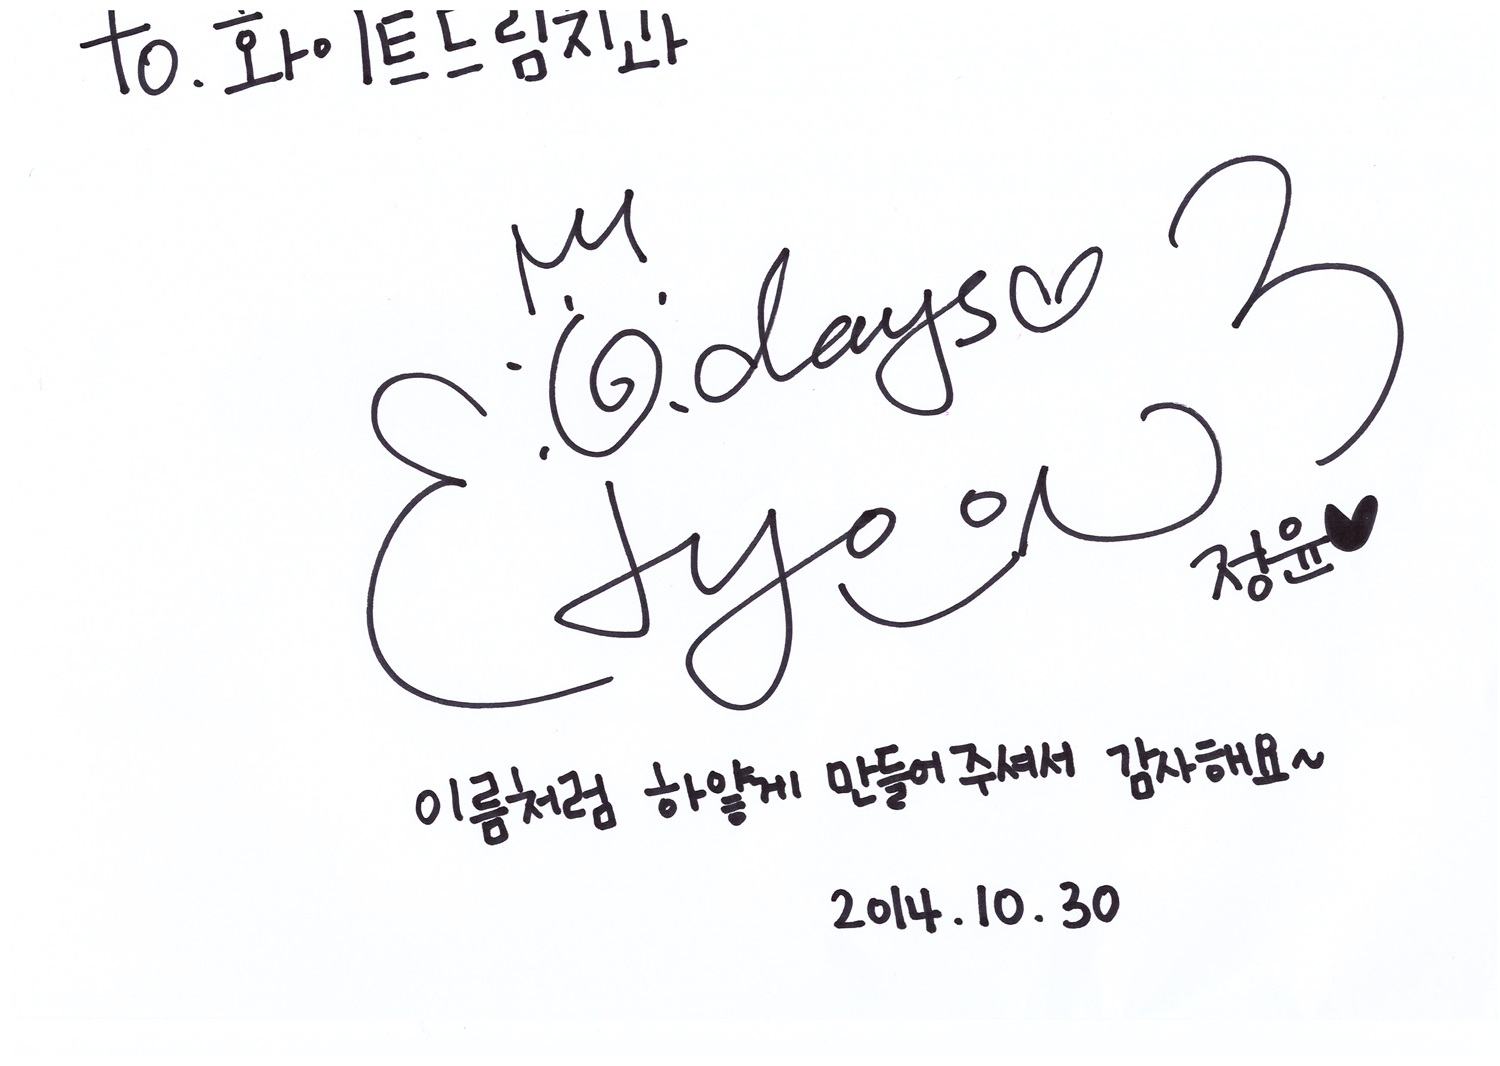 to. 화이트드림치과
days♡
Jyoon
정윤♥
이름처럼 하얗게 만들어주셔서 감사해요~
2014.10.30